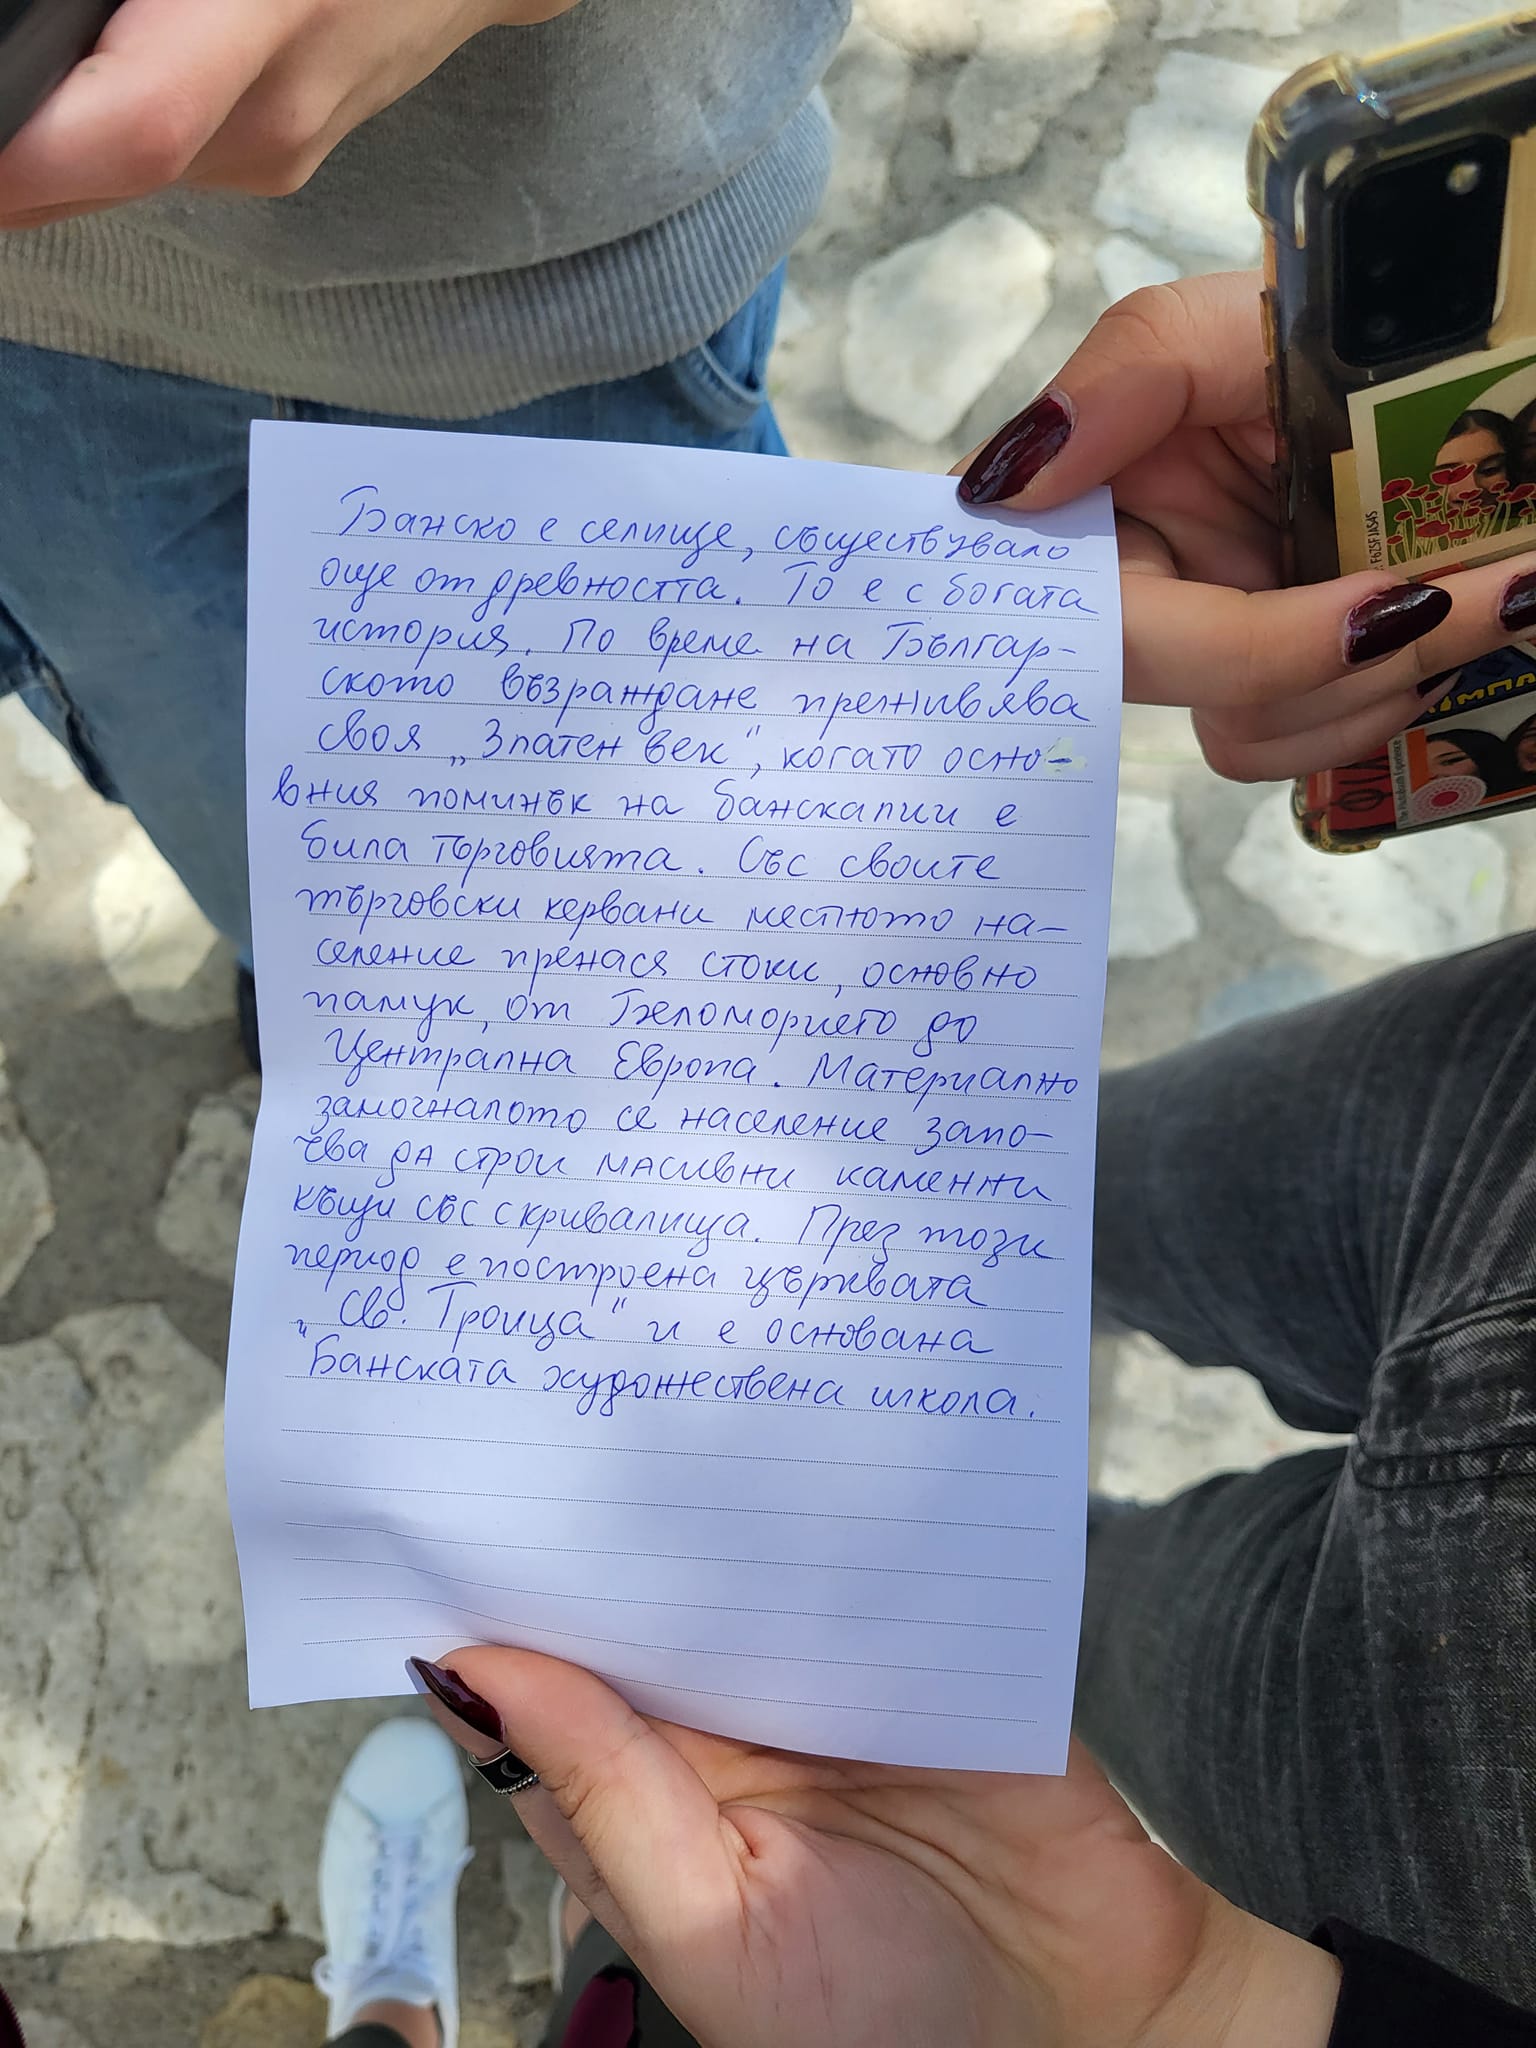 Банско е селище, съществувало
още от древността. То е с богата
история. По време на Българ-
ското възраждане преживява
своя „Златен век", когато осно-
вния поминък на банскалии е
била търговията. Със своите
търговски кервани местното на-
селение пренася стоки, основно
памук, от Беломорието до
Централна Европа. Материално
замогналото се население запо-
чва да строи масивни каменни
къщи със скривалища. През този
период е построена църквата
„Св. Троица" и е основана
Банската художествена школа.